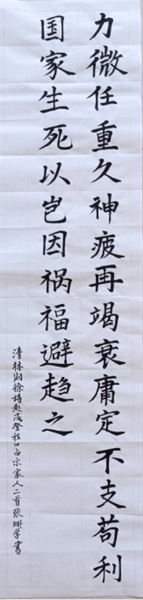 力微任重久神疲再竭衰庸定不支苟利
国家生死以岂因祸福避趋之
清林则徐诗赴戍登程口占示家人二首张琳学书